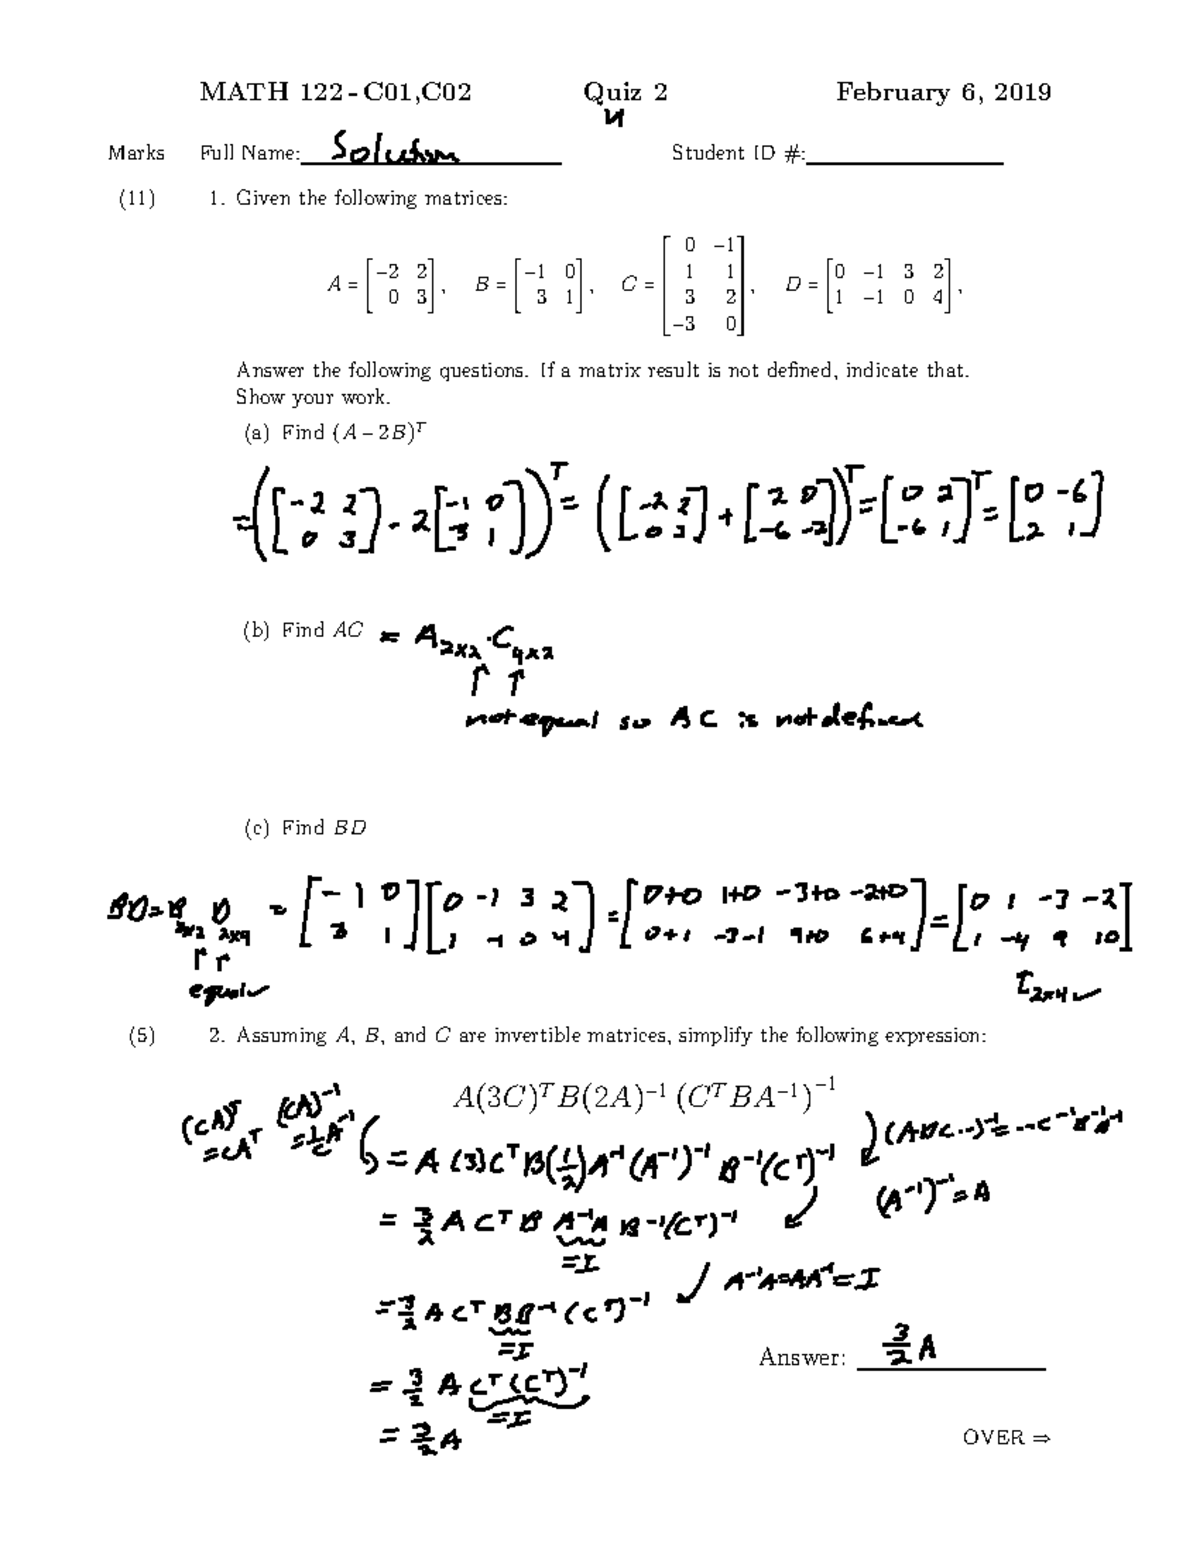 MATH 122 - C01,C02 Quiz 2 February 6, 2019
4
Marks Full Name: Solution Student ID #:
(11) 1. Given the following matrices:
A = [−2 2; 0 3], B = [−1 0; 3 1], C = [0 −1; 1 1; 3 2; −3 0], D = [0 −1 3 2; 1 −1 0 4],
Answer the following questions. If a matrix result is not defined, indicate that.
Show your work.
(a) Find (A − 2B)ᵀ
= ([-2 2; 0 3] - 2[-1 0; 3 1])ᵀ = ([-2 2; 0 3] + [2 0; -6 -2])ᵀ = [0 2; -6 1]ᵀ = [0 -6; 2 1]
(b) Find AC = A₂ₓ₂ · C₄ₓ₂
↑ ↑
not equal so AC is not defined
(c) Find BD
BD = B₂ₓ₂ D₂ₓ₄ = [-1 0; 3 1][0 -1 3 2; 1 -1 0 4] = [0+0 1+0 -3+0 -2+0; 0+1 -3-1 9+0 6+4] = [0 1 -3 -2; 1 -4 9 10]
↑ ↑
equal ✓ I₂ₓ₄ ✓
(5) 2. Assuming A, B, and C are invertible matrices, simplify the following expression:
A(3C)ᵀB(2A)⁻¹ (CᵀBA⁻¹)⁻¹
(cA)ᵀ = cAᵀ (cA)⁻¹ = 1/c A⁻¹
= A (3)Cᵀ B(1/2)A⁻¹ (A⁻¹)⁻¹ B⁻¹(Cᵀ)⁻¹ (ABC...)⁻¹ = ...C⁻¹B⁻¹A⁻¹
(A⁻¹)⁻¹ = A
= 3/2 A Cᵀ B A⁻¹A B⁻¹(Cᵀ)⁻¹
= I
A⁻¹A = AA⁻¹ = I
= 3/2 A Cᵀ B B⁻¹ (Cᵀ)⁻¹
= I
Answer: 3/2 A
= 3/2 A Cᵀ (Cᵀ)⁻¹
= I
= 3/2 A
OVER ⇒